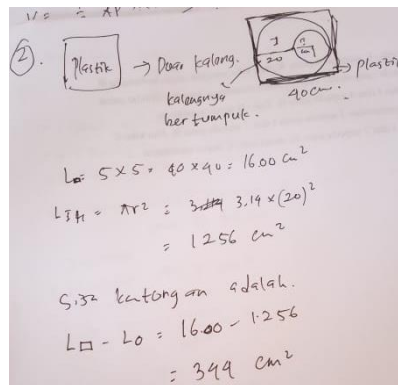 ②. Plastik → Dua kaleng.
kalengnya
bertumpuk.
20
→ plastik
40 cm.
L□ = 5 × 5 = 40 × 40 = 1600 cm²
= πr² = 3.14 × (20)²
= 1256 cm²
Sisa katongan adalah.
L□ - Lo = 1600 - 1.256
= 344 cm²